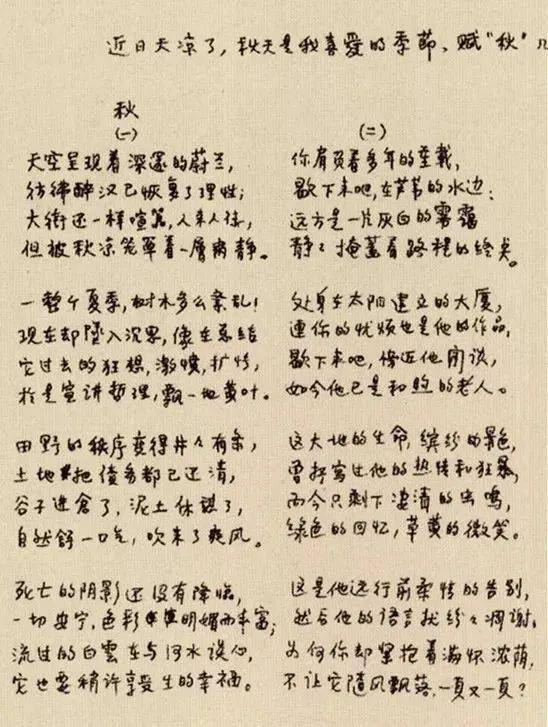 近日天凉了,秋天是我喜爱的季節、赋"秋"
秋
(一)
天空呈现着深邃的蔚兰,
彷彿醉汉已恢复了理性;
大街还一样喧嚣,人来人往,
但被秋凉笼罩着一層肅静。
一整个夏季,树木多么紊乱!
现在却墜入沉思,像在总结
它过去的狂想,激愤,扩张,
於是宣讲哲理,飘一地黄叶。
田野的秩序变得井々有条,
土地把债务都已还清,
谷子进仓了,泥土休憩了,
自然舒一口气,吹来了爽风。
死亡的阴影还没有降临,
一切安宁,色彩明媚而丰富;
流过的白雲在与河水谈心,
它也要稍许享受生的幸福。
(二)
你肩负着多年的重载,
歇下来吧,在芦苇的水边:
远方是一片灰白的雾霭
静々掩盖着路程的终点。
处身在太阳建立的大厦,
连你的忧烦也是他的作品,
歇下来吧,傍近他闲谈,
如今他已是和煦的老人。
这大地的生命,缤纷的景色,
曾抒写过他的热情和狂暴,
而今只剩下凄清的虫鸣,
绿色的回忆,草黄的微笑。
这是他远行前柔情的告别,
然后他的语言就纷々凋谢;
为何你却紧抱着满怀浓荫,
不让它随风飘落,一頁又一頁?